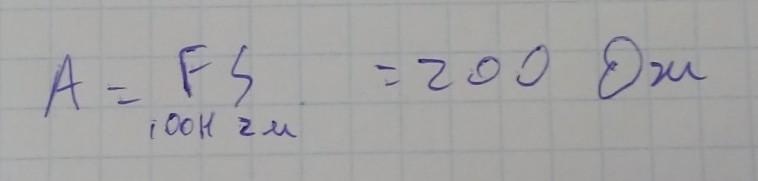 A = FS = 200 Дж
100Н 2м